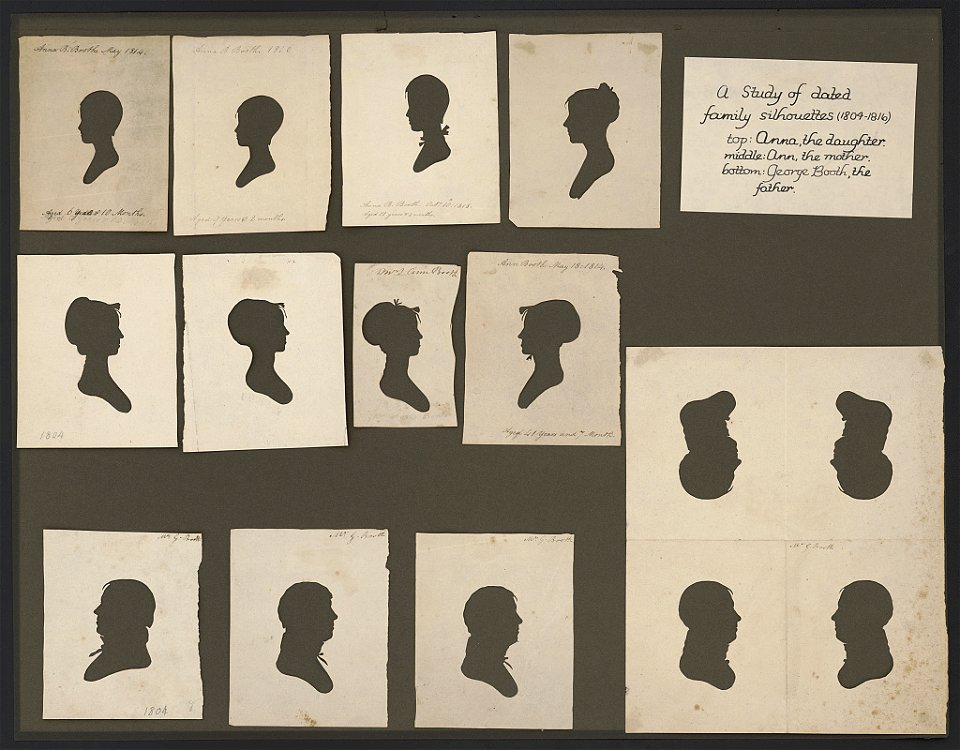 Anna B. Booth May 1814.
Aged 6 Years & 10 Months.
Anna B Booth
Aged 7 Years & 2 months
Anna B. Booth
A Study of dated
family silhouettes (1804-1816)
top: Anna, the daughter.
middle: Ann, the mother.
bottom: George Booth, the
father.
1804
Ann Booth
Ann Booth May 18: 1814.
Aged 41 Years and Month.
Mr G. Booth
1804
Mr G. Booth
Mr G. Booth
Mr G. Booth